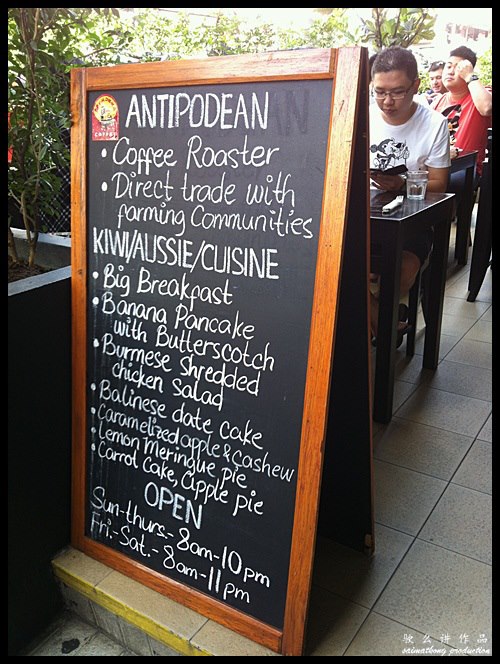 ANTIPODEAN
• Coffee Roaster
• Direct trade with
farming Communities
KIWI/AUSSIE/CUISINE
• Big Breakfast
• Banana Pancake
with Butterscotch
• Burmese Shredded
chicken Salad
• Balinese date cake
• Caramelized apple & cashew
• Lemon Meringue pie
• Carrot Cake, Apple pie
OPEN
Sun-thurs- 8am-10pm
Fri.-Sat.- 8am-11pm
saimatkong production